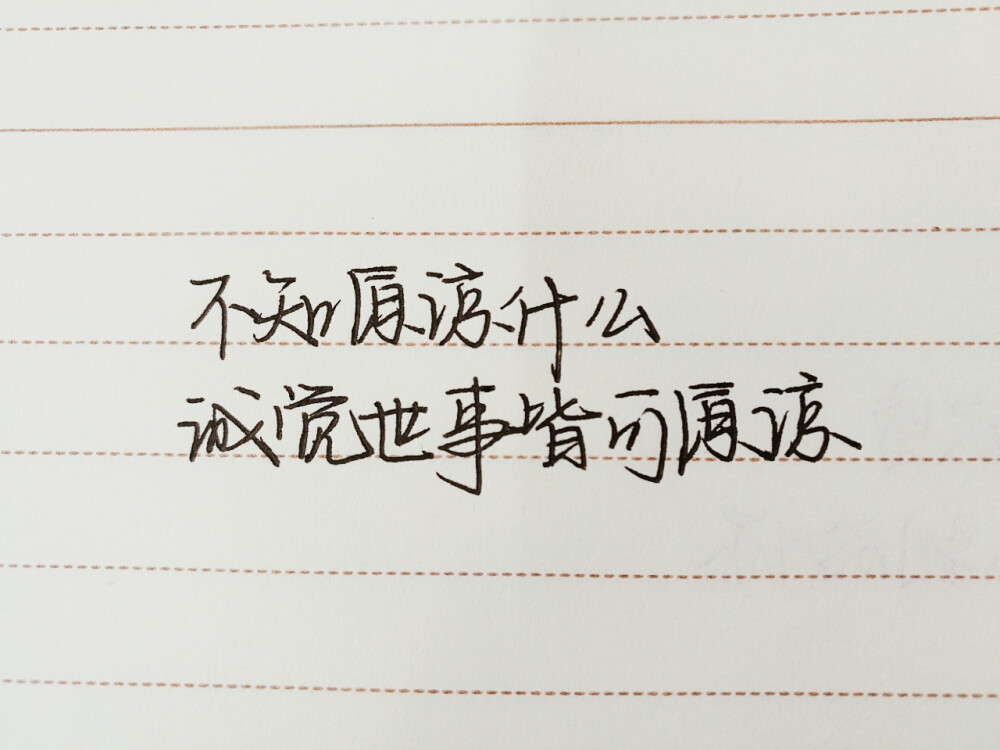 不知原谅什么
诚觉世事皆可原谅